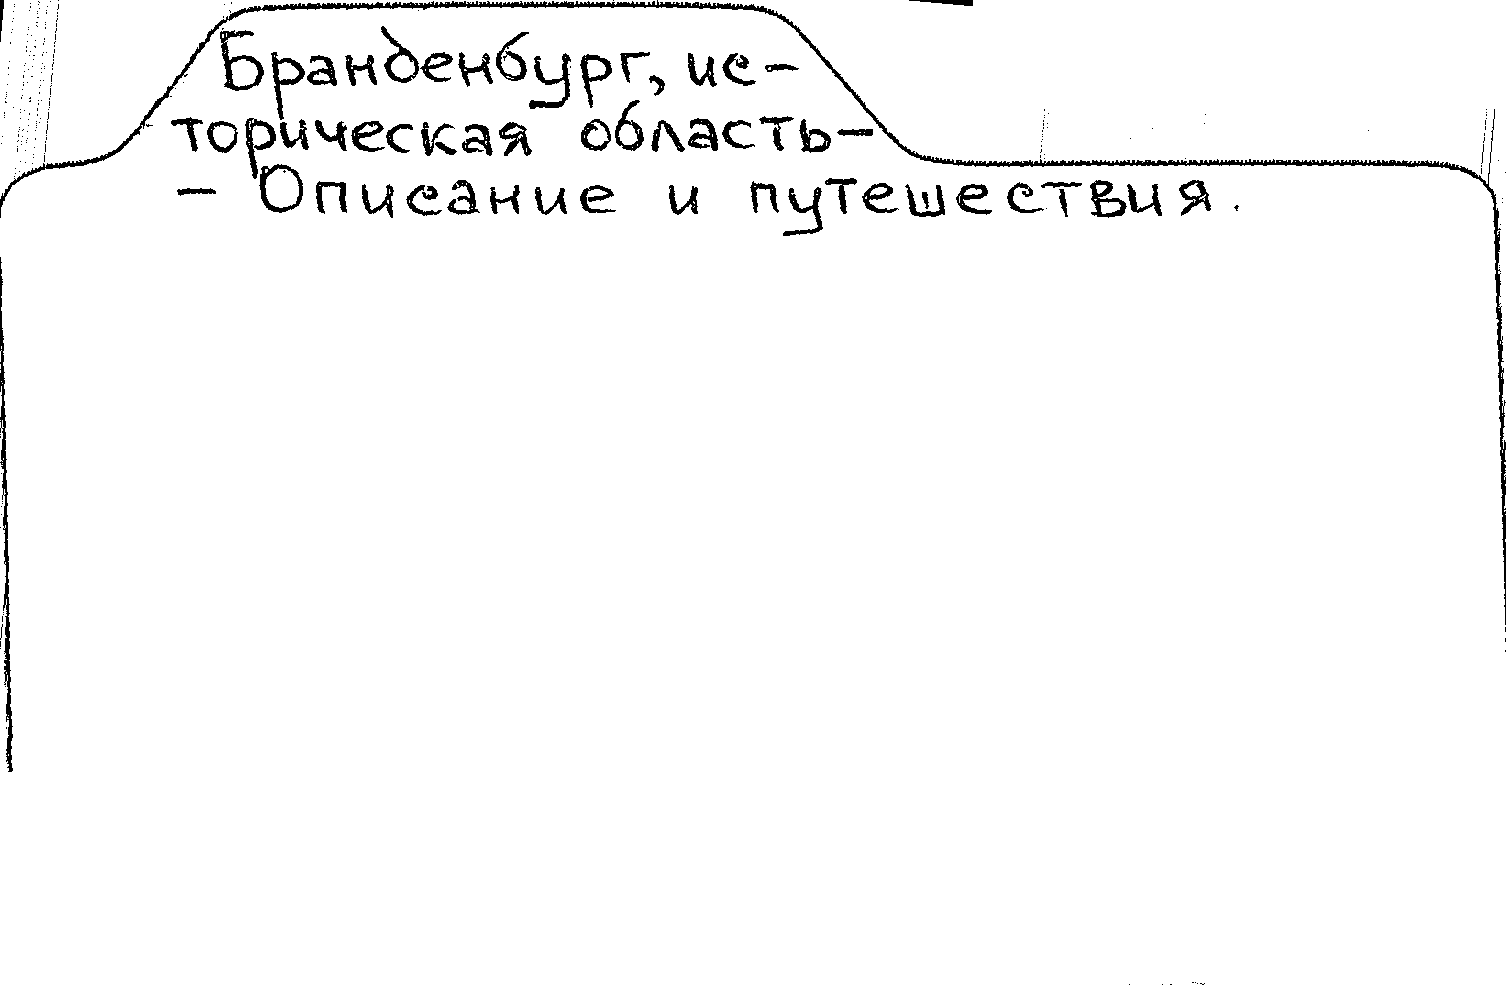 Бранденбург, ис-
торическая область-
- Описание и путешествия.